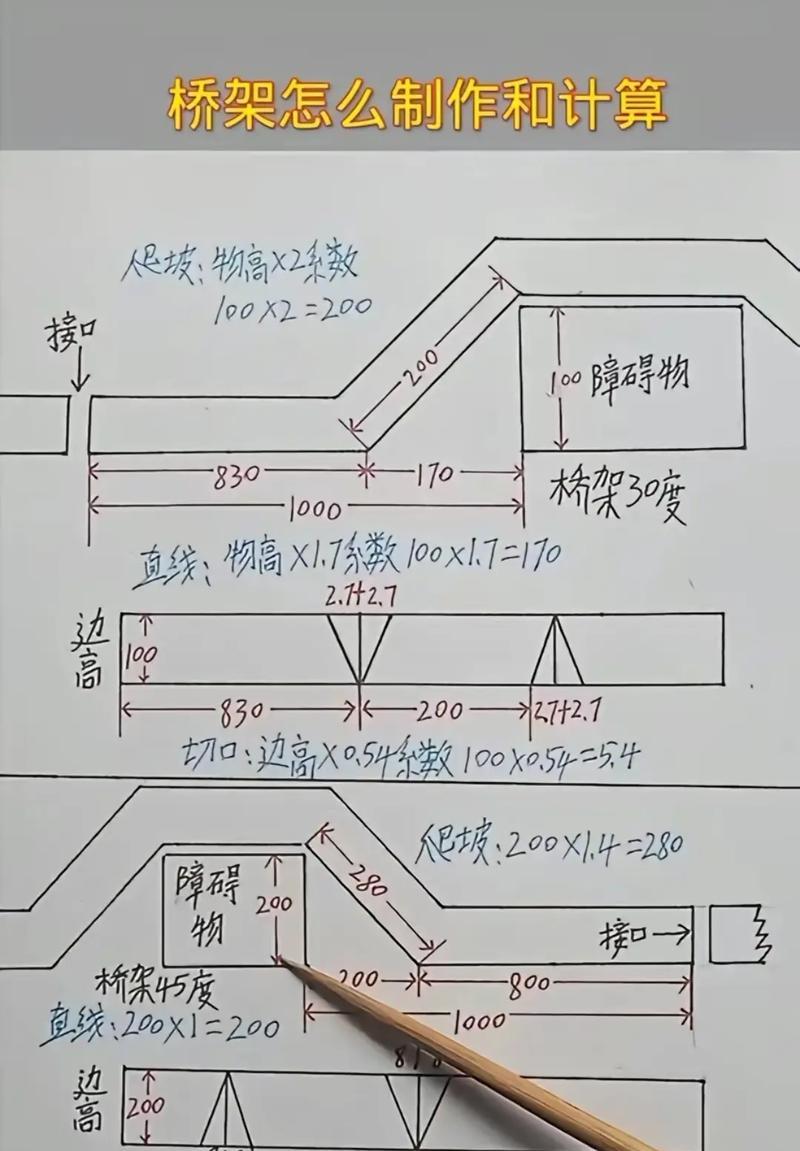 桥架怎么制作和计算
爬坡：物高×2系数
100×2=200
接口
200
100 障碍物
830
170
1000
桥架30度
直线：物高×1.7系数 100×1.7=170
2.7+2.7
边高
100
830
200
2.7+2.7
切口：边高×0.54系数 100×0.54=5.4
爬坡：200×1.4=280
障碍物
200
280
接口
桥架45度
200
800
直线：200×1=200
1000
边高
200